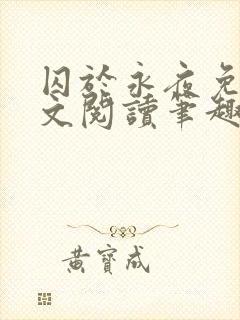 囚於永夜免
文閱讀筆趣
黃寶成